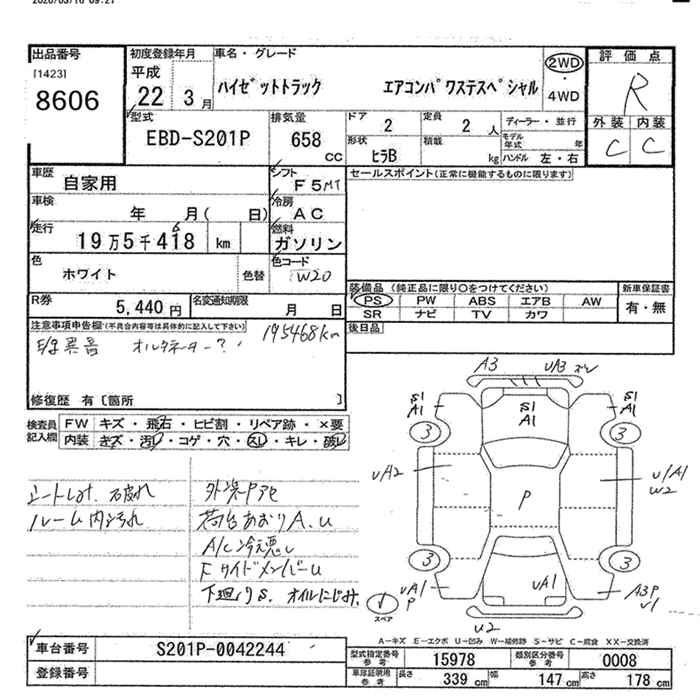 2020/03/16 09:21
出品番号
[1423]
8606
初度登録年月
平成
22 3月
車名・グレード
ハイゼットトラック エアコンパワステスペシャル
2WD
・
4WD
評価点
R
外装 内装
C C
型式
EBD-S201P
排気量
658
cc
ドア
2
定員
2人
形状
ヒラB
積載
kg
ディーラー・並行
モデル年式 年
ハンドル 左・右
車歴
自家用
シフト
F5MT
セールスポイント(正常に機能するものに限ります)
車検
年 月( 日)
冷房
AC
走行
19万5千418 km
6
燃料
ガソリン
色
ホワイト
色替
色コード
W20
装備品 (純正品に限り○をつけてください)
PS PW ABS エアB AW
SR ナビ TV カワ
新車保証書
有・無
R券
5,440円
名変通知期限
月 日
後日品
注意事項申告欄(不具合内容等は具体的に記入して下さい)
195468km
異音 オルタネーター?
修復歴 有〔箇所 〕
検査員
記入欄
FW キズ・飛石・ヒビ割・リペア跡・×要
内装 キズ・汚レ・コゲ・穴・スレ・キレ・破レ
シートしみ、破れ
ルーム内汚れ
外装Pアセ
荷台あおりA.U
A/C冷え悪し
FサイドメンバーU
下廻りS、オイルにじみ
A3 UA3
S1
A1
S1
A1
S1
A1
3
3
UA2
U/A1
W2
P
3
3
UA1
P
UA1
A3P
U1
U2
スペア
A-キズ E-エクボ U-凹み W-補修跡 S-サビ C-腐食 XX-交換済
車台番号
S201P-0042244
登録番号
型式指定番号
参考
15978
類別区分番号
参考
0008
車庫証明用
参考
長さ
339 cm
幅
147 cm
高さ
178 cm